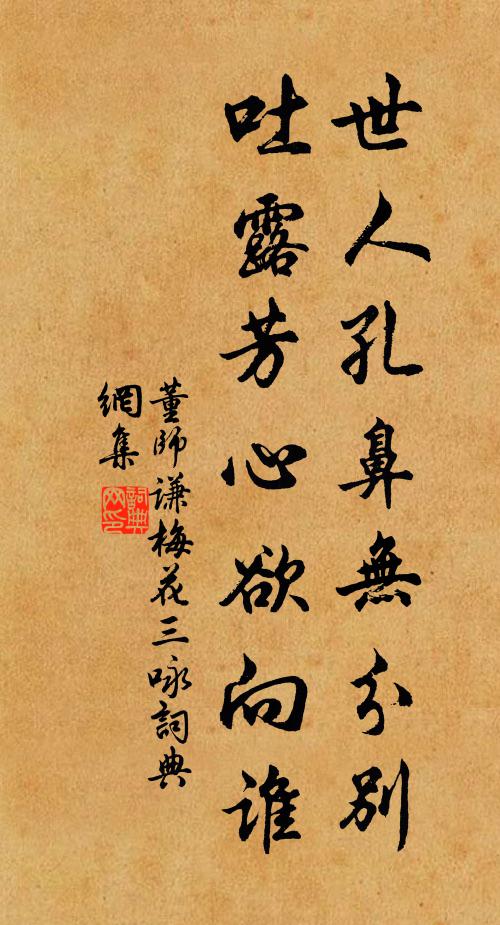 世人孔鼻無分別
吐露芳心欲向誰
董師谦梅花三咏詞典
網集
詞典網印